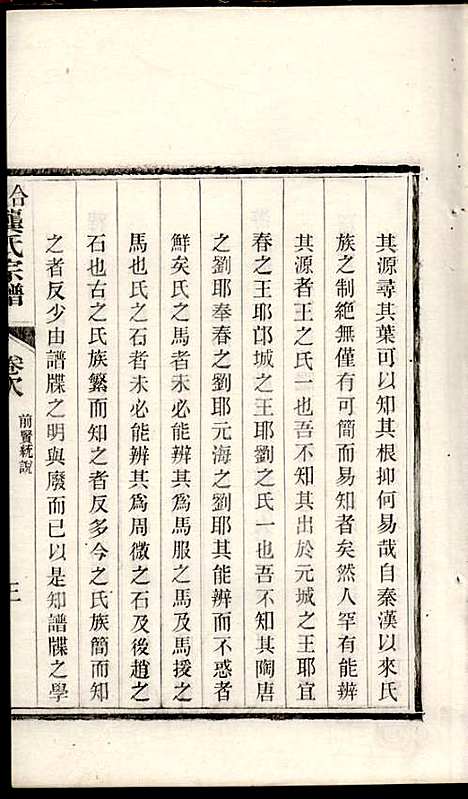 其源尋其葉可以知其根抑何易哉自秦漢以來氏
族之制絶無僅有可簡而易知者矣然人罕有能辨
其源者王之氏一也吾不知其出於元城之王耶宜
春之王耶邙城之王耶劉之氏一也吾不知其陶唐
之劉耶奉春之劉耶元海之劉耶其能辨而不惑者
鮮矣氏之馬者未必能辨其爲馬服之馬及馬援之
馬也氏之石者未必能辨其爲周微之石及後趙之
石也古之氏族繁而知之者反多今之氏族簡而知
之者反少由譜牒之明與廢而已以是知譜牒之學
合龔氏宗譜
卷次
前賢統說
三